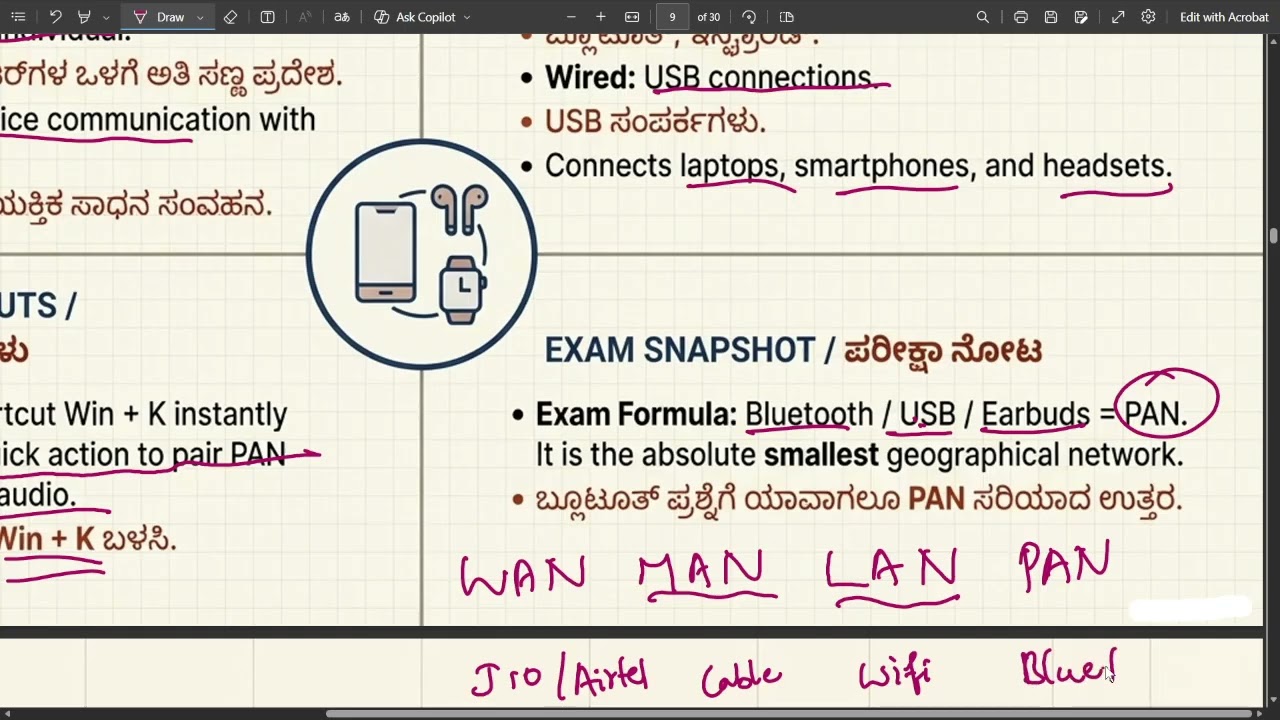 Draw
Ask Copilot
9 of 30
Edit with Acrobat
individual.
ರ್‌ಗಳ ಒಳಗೆ ಅತಿ ಸಣ್ಣ ಪ್ರದೇಶ.
ice communication with
ಯಕ್ತಿಕ ಸಾಧನ ಸಂವಹನ.
• Wired: USB connections.
• USB ಸಂಪರ್ಕಗಳು.
• Connects laptops, smartphones, and headsets.
UTS /
ಳು
rtcut Win + K instantly
ick action to pair PAN
audio.
Win + K ಬಳಸಿ.
EXAM SNAPSHOT / ಪರೀಕ್ಷಾ ನೋಟ
• Exam Formula: Bluetooth / USB / Earbuds = PAN.
It is the absolute smallest geographical network.
• ಬ್ಲೂಟೂತ್ ಪ್ರಶ್ನೆಗೆ ಯಾವಾಗಲೂ PAN ಸರಿಯಾದ ಉತ್ತರ.
WAN MAN LAN PAN
Jio / Airtel Cable Wifi